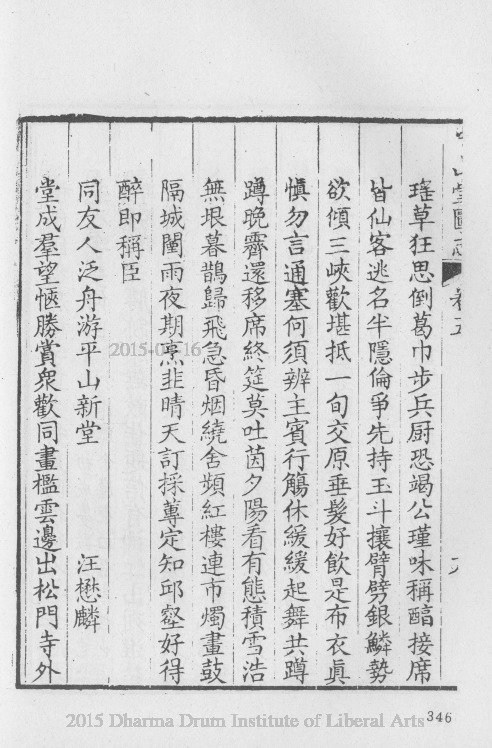 瑤草狂思倒葛巾步兵厨恐竭公瑾味稱醕接席
皆仙客逃名半隱倫爭先持玉斗攘臂劈銀鱗勢
欲傾三峽歡堪抵一旬交原垂髮好飲是布衣眞
慎勿言通塞何須辨主賓行觴休緩緩起舞共蹲
蹲晚霽還移席終筵莫吐茵夕陽看有態積雪浩
無垠暮鵲歸飛急昏烟繞舍頻紅樓連市燭畫鼓
隔城闉雨夜期烹韭晴天訂採蓴定知邱壑好得
醉即稱臣
同友人泛舟游平山新堂 汪懋麟
堂成羣望愜勝賞衆歡同畫檻雲邊出松門寺外
346
2015 Dharma Drum Institute of Liberal Arts